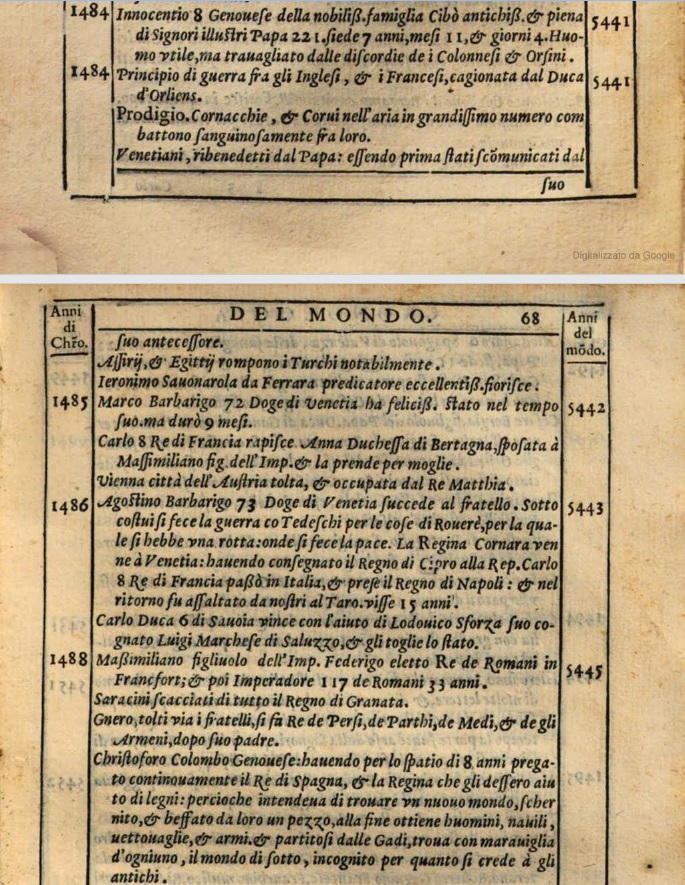 1484 Innocentio 8 Genouese della nobiliß.famiglia Cibò antichiß.& piena 5441
di Signori illustri Papa 221.siede 7 anni,mesi 11,& giorni 4.Huo-
mo vtile,ma trauagliato dalle discordie de i Colonnesi & Orsini.
1484 Principio di guerra fra gli Inglesi, & i Francesi,cagionata dal Duca 5441
d'Orliens.
Prodigio.Cornacchie, & Corui nell'aria in grandissimo numero com
battono sanguinosamente fra loro.
Venetiani,ribenedetti dal Papa: essendo prima stati scõmunicati dal
suo
Digitalizzato da Google
Anni di Chr̃o. DEL MONDO. 68 Anni del mõdo.
suo antecessore.
Assirij,& Egittij rompono i Turchi notabilmente.
Ieronimo Sauonarola da Ferrara predicatore eccellentiß.fiorisce.
1485 Marco Barbarigo 72 Doge di Venetia ha feliciß. stato nel tempo 5442
suo.ma durò 9 mesi.
Carlo 8 Re di Francia rapisce Anna Duchessa di Bertagna,sposata à
Massimiliano fig.dell'Imp.& la prende per moglie.
Vienna città dell'Austria tolta, & occupata dal Re Matthia.
1486 Agostino Barbarigo 73 Doge di Venetia succede al fratello. Sotto 5443
costui si fece la guerra co Tedeschi per le cose di Rouerè,per la qua-
le si hebbe vna rotta:onde si fece la pace. La Regina Cornara ven
ne à Venetia: hauendo consegnato il Regno di Cipro alla Rep.Carlo
8 Re di Francia paßò in Italia,& prese il Regno di Napoli: & nel
ritorno fu assaltato da nostri al Taro.visse 15 anni.
Carlo Duca 6 di Sauoia vince con l'aiuto di Lodouico Sforza suo co-
gnato Luigi Marchese di Saluzzo,& gli toglie lo stato.
1488 Maßimiliano figliuolo dell'Imp. Federigo eletto Re de Romani in 5445
Francfort;& poi Imperadore 117 de Romani 33 anni.
Saracini scacciati di tutto il Regno di Granata.
Gnero,tolti via i fratelli,si fà Re de Persi,de Parthi,de Medi,& de gli
Armeni,dopo suo padre.
Christoforo Colombo Genouese:hauendo per lo spatio di 8 anni prega-
to continouamente il Re di Spagna, & la Regina che gli dessero aiu
to di legni: percioche intendeua di trouare vn nuouo mondo,scher
nito,& beffato da loro un pezzo,alla fine ottiene huomini, nauili,
uettouaglie,& armi.& partitosi dalle Gadi,troua con marauiglia
d'ogniuno, il mondo di sotto, incognito per quanto si crede à gli
antichi.